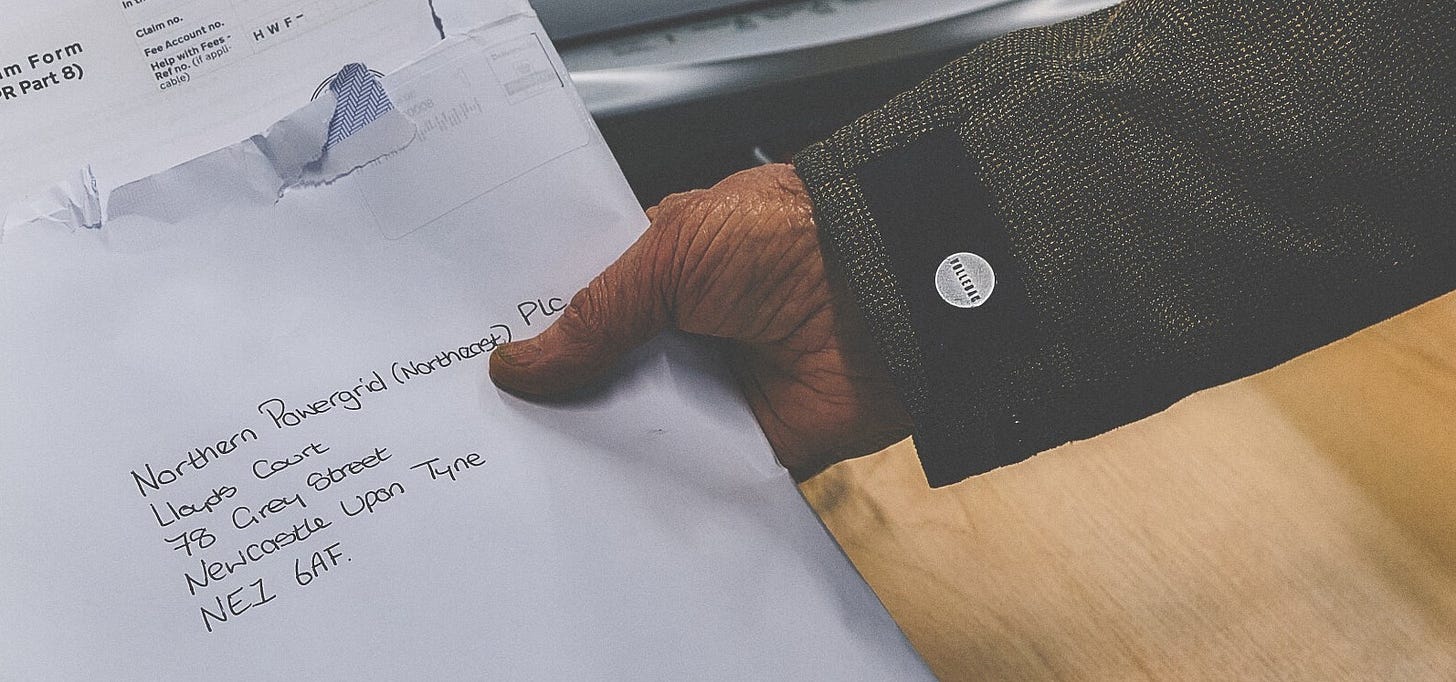 In th
Claim no.
Fee Account no.
Help with Fees -
Ref no. (if appli-
cable)
H W F -
m Form
PR Part 8)
Northern Powergrid (Northeast) Plc
Lloyds Court
78 Grey Street
Newcastle Upon Tyne
NE1 6AF.
VOLLEBAK